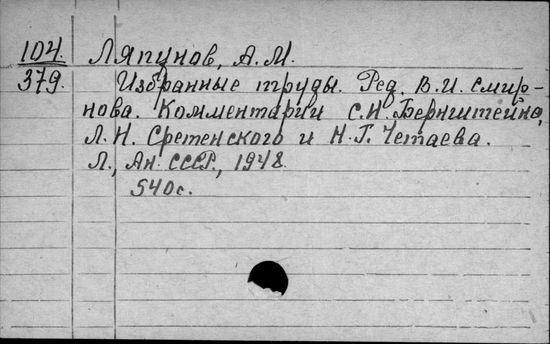 104. Ляпунов, А.М.
379. Избранные труды. Ред. В.И. Смир-
нова. Комментарии С.Н. Бернштейна,
Л.Н. Сретенского и Н.Г. Четаева.
Л., Ан. СССР, 1948.
540с.